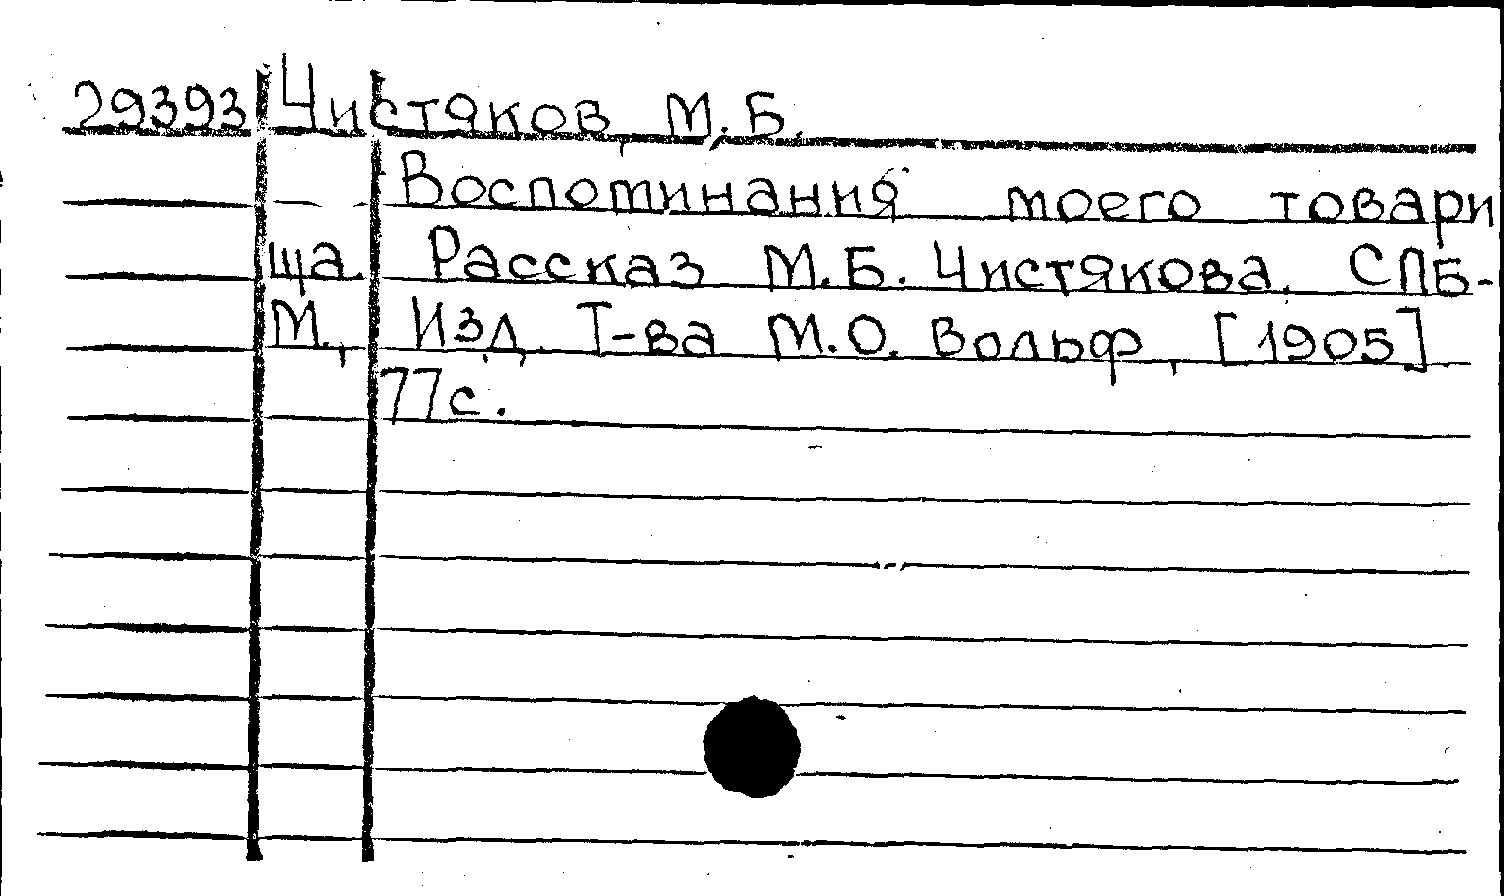 29393 Чистяков, М.Б.
Воспоминания моего товари
ща. Рассказ М.Б. Чистякова. СПБ-
М., Изд. Т-ва М.О. Вольф, [1905]
77с.